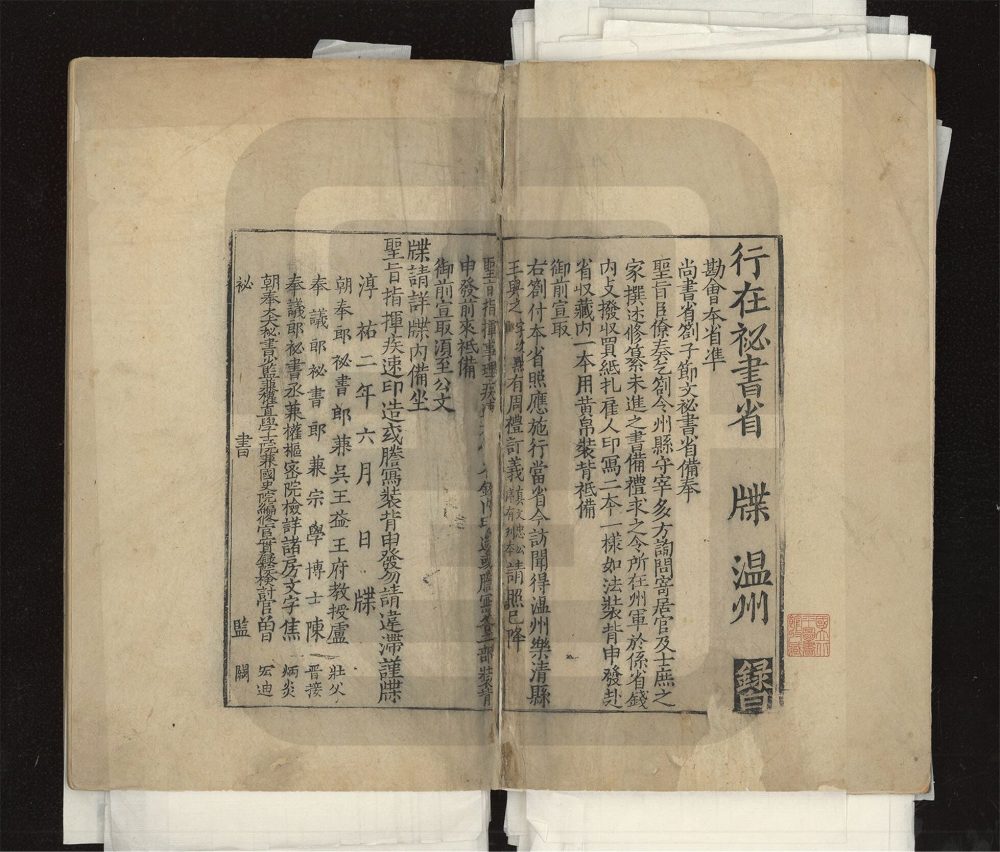 行在祕書省　牒　温州　錄白
勘會本省準
尚書省劄子節文祕書省備奉
聖旨臣僚奏乞劄令州縣守宰多方詢問寄居官及士庶之
家撰述修纂未進之書備禮求之令所在州軍於係省錢
内支撥收買紙札雇人印寫二本一樣如法裝背申發赴
省收藏内一本用黄帛裝背祗備
御前宣取
右劄付本省照應施行當省今訪聞得温州樂清縣
王與之 有周禮訂義 請照已降
聖旨指揮事理疾速 印造或謄寫 一部裝背
申發前來祗備
御前宣取須至公文
牒請詳牒内備坐
聖旨指揮疾速印造或謄寫裝背申發勿請違滯謹牒
淳祐二年六月　日　牒
朝奉郎祕書郎兼吳王益王府教授盧　壯父
奉議郎祕書郎兼宗學博士陳　晉接
奉議郎祕書丞兼權樞密院檢詳諸房文字焦　炳炎
朝奉大夫祕書少監兼權直學士院兼國史院編修官實錄院檢討官曾　宏迪
祕　書　監　闕